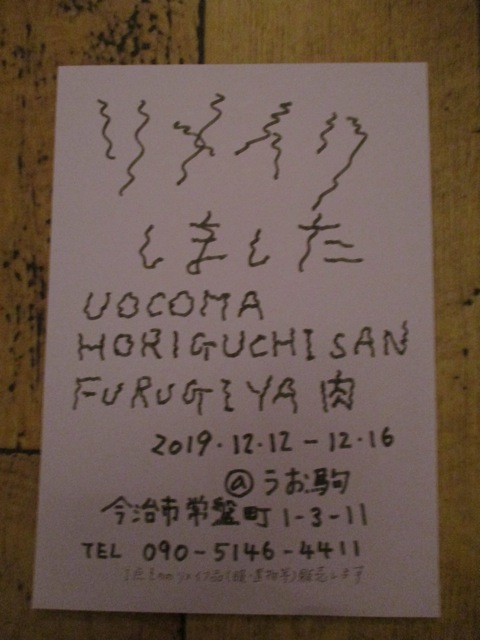 リメイク
しました
UOCOMA
HORIGUCHI SAN
FURUGIYA 肉
2019.12.12-12.16
@うお駒
今治市常盤町1-3-11
TEL 090-5146-4411
リメイク品 販売します